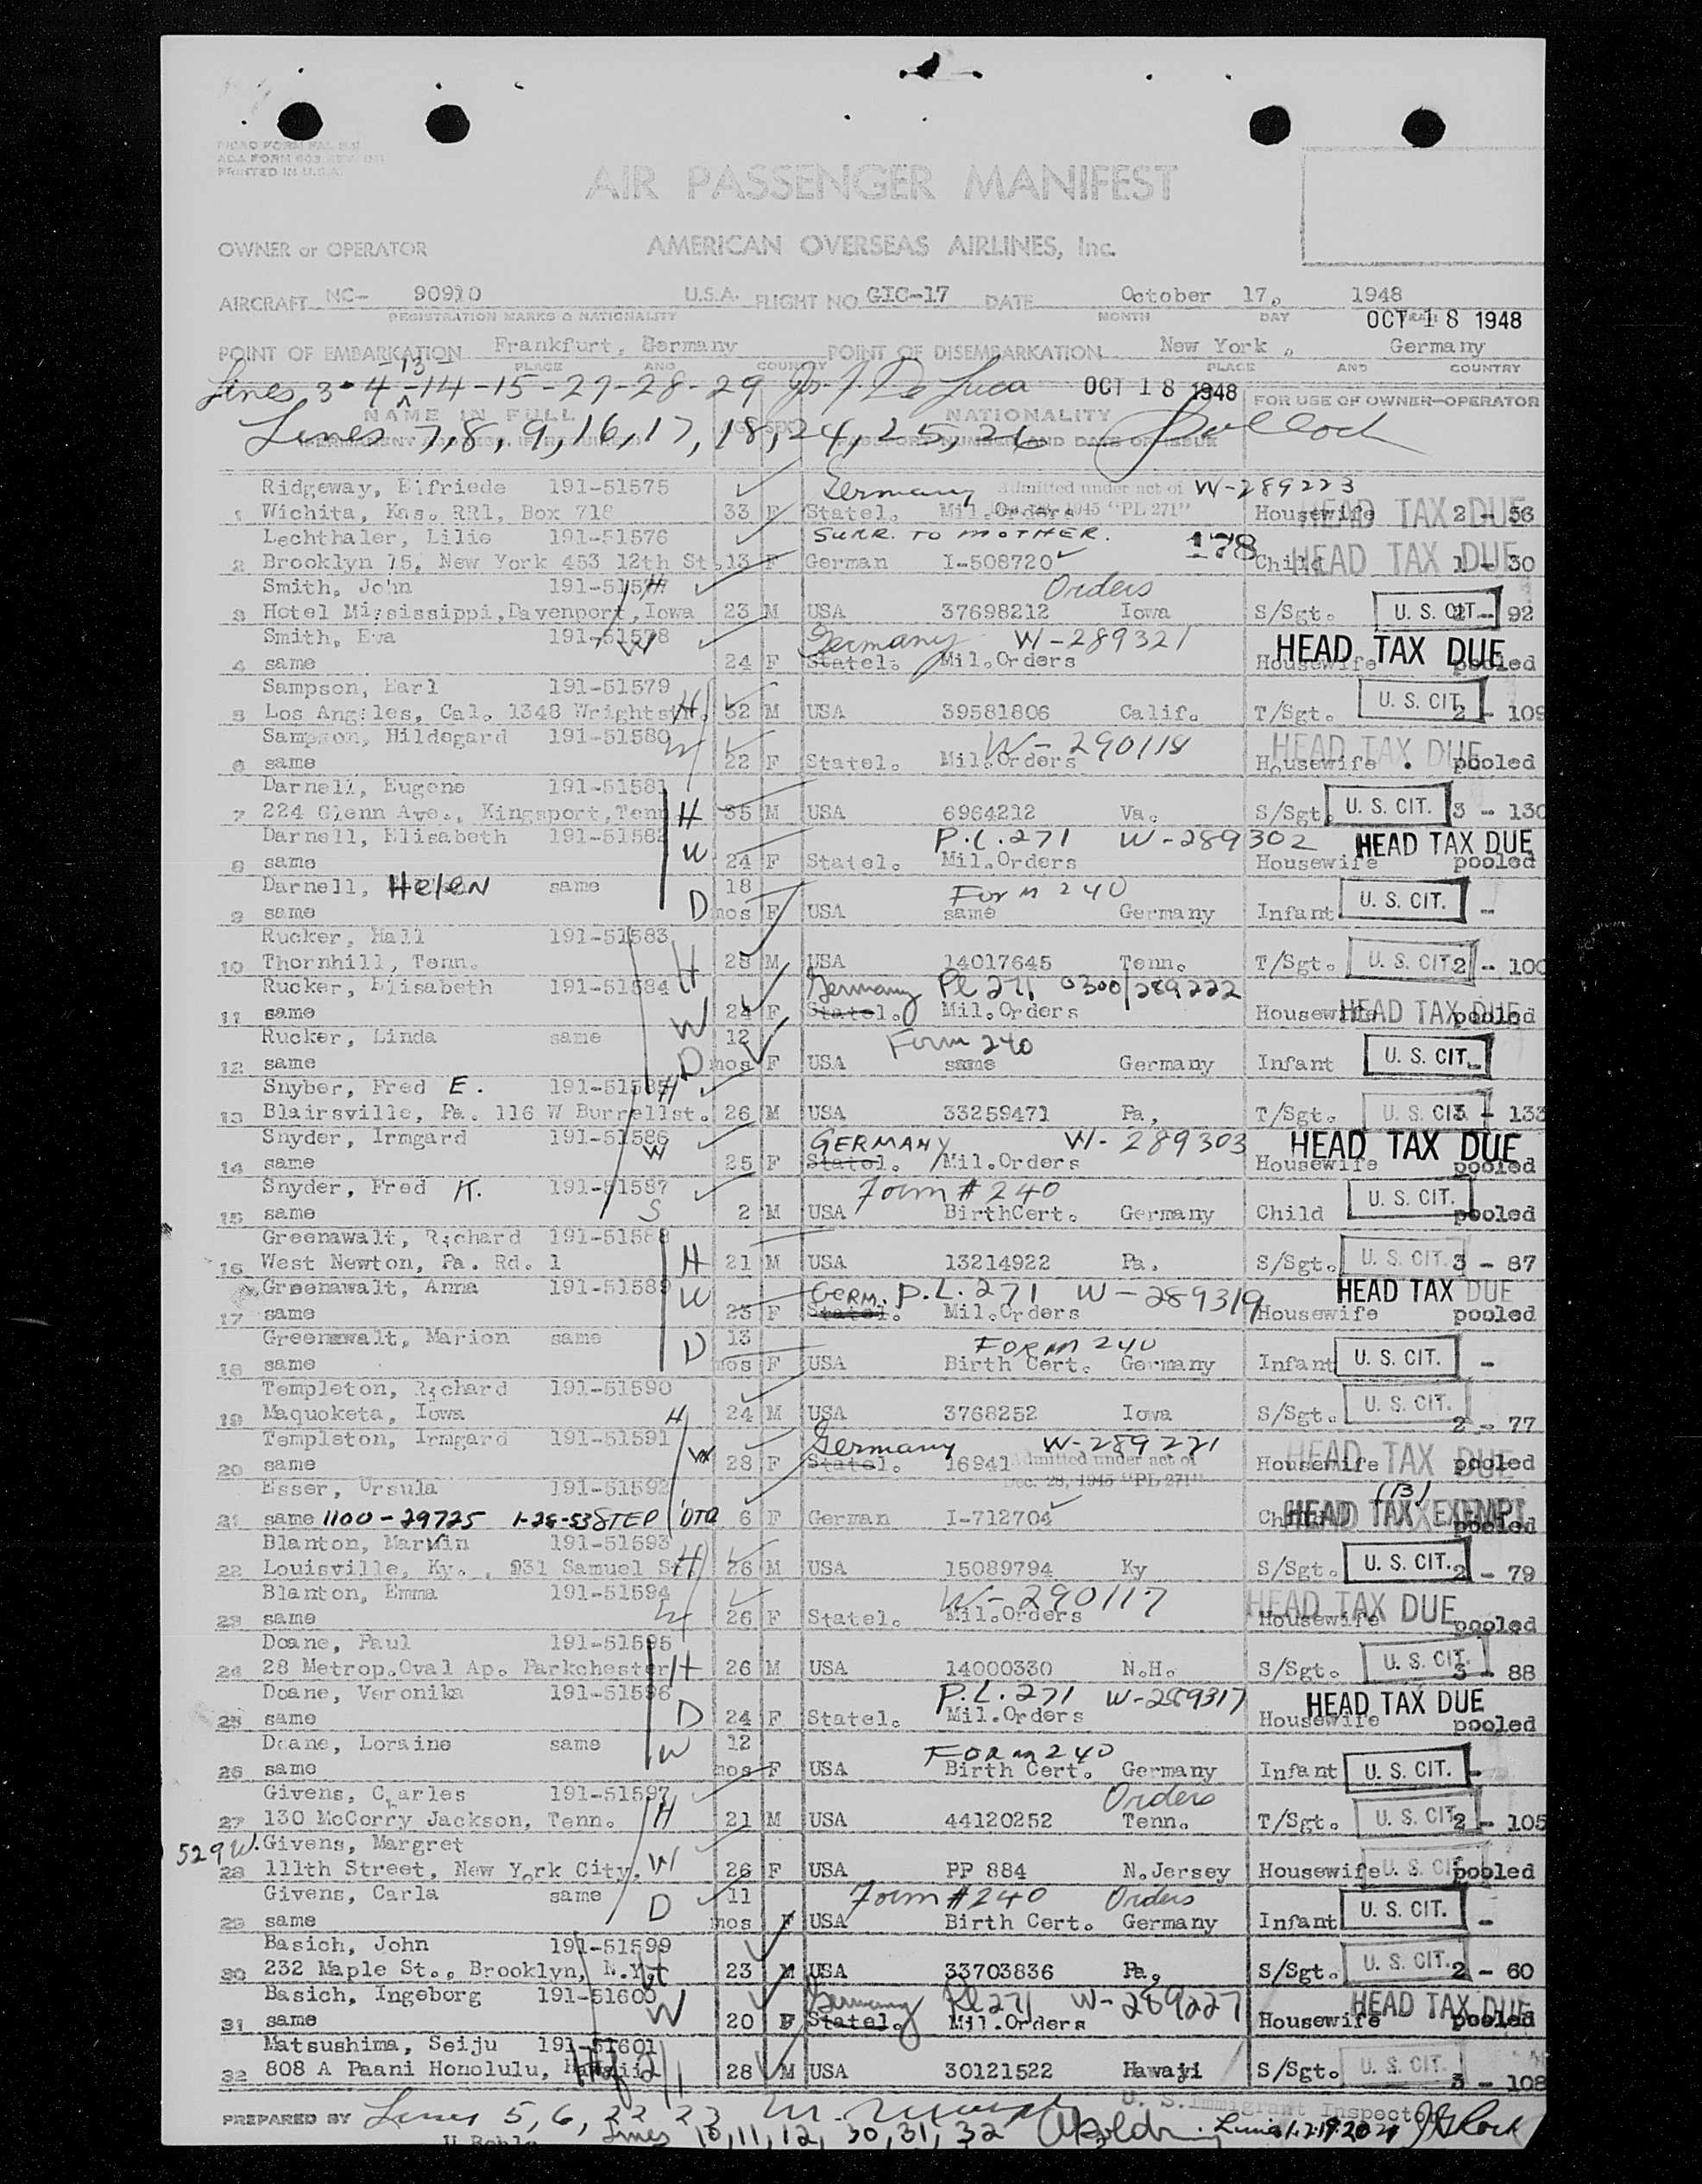 PRINTED IN U.S.A.
AIR PASSENGER MANIFEST
OWNER or OPERATOR AMERICAN OVERSEAS AIRLINES, Inc.
AIRCRAFT NC- 90910 U.S.A. FLIGHT NO. GIC-17 DATE October 17, 1948
REGISTRATION MARKS & NATIONALITY MONTH DAY YEAR
OCT 18 1948
POINT OF EMBARKATION Frankfurt, Germany POINT OF DISEMBARKATION New York, Germany
PLACE AND COUNTRY PLACE AND COUNTRY
-13-
Lines 3-4-14-15-27-28-29 De Luca OCT 18 1948
FOR USE OF OWNER-OPERATOR
NAME IN FULL NATIONALITY
Lines 7,8,9,16,17,18,24,25,26
Ridgeway, Elfriede 191-51575 Germany Admitted under act of W-289223
1 Wichita, Kas. RR1, Box 718 33 F Statel. Mil.Orders Dec. 28, 1945 "PL 271" Housewife HEAD TAX DUE 2 - 56
Lechthaler, Lilie 191-51576 SURR. TO MOTHER. 178
2 Brooklyn 15, New York 453 12th St. 13 F German I-508720 Child HEAD TAX DUE 1 - 30
Smith, John 191-51577 H Orders
3 Hotel Mississippi, Davenport, Iowa 23 M USA 37698212 Iowa S/Sgt. U. S. CIT. - 92
Smith, Eva 191-51578 W Germany W-289321 HEAD TAX DUE
4 same 24 F Statel. Mil.Orders Housewife pooled
Sampson, Earl 191-51579 H
5 Los Angeles, Cal. 1348 Wrightst. 32 M USA 39581806 Calif. T/Sgt. U. S. CIT. 2 - 109
Sampson, Hildegard 191-51580 W W-290118 HEAD TAX DUE
6 same 22 F Statel. Mil.Orders Housewife pooled
Darnell, Eugene 191-51581
7 224 Glenn Ave., Kingsport, Tenn H 35 M USA 6964212 Va. S/Sgt. U. S. CIT. 3 - 130
Darnell, Elisabeth 191-51582 W P.L.271 W-289302 HEAD TAX DUE
8 same 24 F Statel. Mil.Orders Housewife pooled
Darnell, Helen same 18 Form 240
9 same D mos F USA same Germany Infant U. S. CIT. -
Rucker, Hall 191-51583
10 Thornhill, Tenn. H 28 M USA 14017645 Tenn. T/Sgt. U. S. CIT. 2 - 100
Rucker, Elisabeth 191-51584 Germany Pl 271 0300/289222
11 same W 24 F Statel. Mil.Orders Housewife HEAD TAX DUE pooled
Rucker, Linda same 12 Form 240
12 same D mos F USA same Germany Infant U. S. CIT. -
Snyber, Fred E. 191-51585 H
13 Blairsville, Pa. 116 W Burrellst. 26 M USA 33259471 Pa. T/Sgt. U. S. CIT. 3 - 133
Snyder, Irmgard 191-51586 W GERMANY W-289303 HEAD TAX DUE
14 same 25 F Statel. Mil.Orders Housewife pooled
Snyder, Fred K. 191-51587 Form #240
15 same S 2 M USA BirthCert. Germany Child U. S. CIT. pooled
Greenawalt, Richard 191-51588
16 West Newton, Pa. Rd. 1 H 21 M USA 13214922 Pa. S/Sgt. U. S. CIT. 3 - 87
Greenawalt, Anna 191-51589 W GERM. P.L.271 W-289319 HEAD TAX DUE
17 same 23 F Statel. Mil.Orders Housewife pooled
Greenawalt, Marion same D 13 FORM 240
18 same mos F USA Birth Cert. Germany Infant U. S. CIT. -
Templeton, Richard 191-51590
19 Maquoketa, Iowa H 24 M USA 3768252 Iowa S/Sgt. U. S. CIT. 2 - 77
Templeton, Irmgard 191-51591 W Germany W-289221
20 same 28 F Statel. 16941 Admitted under act of Dec. 28, 1945 "PL 271" Housewife HEAD TAX DUE pooled
Esser, Ursula 191-51592 (13)
21 same 1100-29725 1-26-53 STEP DTR 6 F German I-712704 Child HEAD TAX EXEMPT pooled
Blanton, Marvin 191-51593
22 Louisville, Ky., 931 Samuel St. H 26 M USA 15089794 Ky S/Sgt. U. S. CIT. 2 - 79
Blanton, Emma 191-51594 W W-290117 HEAD TAX DUE
23 same 26 F Statel. Mil.Orders Housewife pooled
Doane, Paul 191-51595
24 28 Metrop.Oval Ap. Parkchester H 26 M USA 14000330 N.H. S/Sgt. U. S. CIT. 3 - 88
Doane, Veronika 191-51596 P.L.271 W-289317 HEAD TAX DUE
25 same D 24 F Statel. Mil.Orders Housewife pooled
Doane, Loraine same W 12 FORM 240
26 same mos F USA Birth Cert. Germany Infant U. S. CIT. -
Givens, Charles 191-51597 Orders
27 130 McCorry Jackson, Tenn. H 21 M USA 44120252 Tenn. T/Sgt. U. S. CIT. 2 - 105
529 W. Givens, Margret
28 111th Street, New York City, W 26 F USA PP 884 N.Jersey Housewife U. S. CIT. pooled
Givens, Carla same D 11 Form #240 Orders
29 same mos F USA Birth Cert. Germany Infant U. S. CIT. -
Basich, John 191-51599
30 232 Maple St., Brooklyn, N.Y. H 23 M USA 33703836 Pa. S/Sgt. U. S. CIT. 2 - 60
Basich, Ingeborg 191-51600 W Germany Pl 271 W-289227 HEAD TAX DUE
31 same 20 F Statel. Mil.Orders Housewife pooled
Matsushima, Seiju 191-51601
32 808 A Paani Honolulu, Hawaii 28 M USA 30121522 Hawaii S/Sgt. U. S. CIT. 3 - 108
U. S. Immigrant Inspector
PREPARED BY Lines 5, 6, 22 23
Lines 10,11,12, 30,31,32